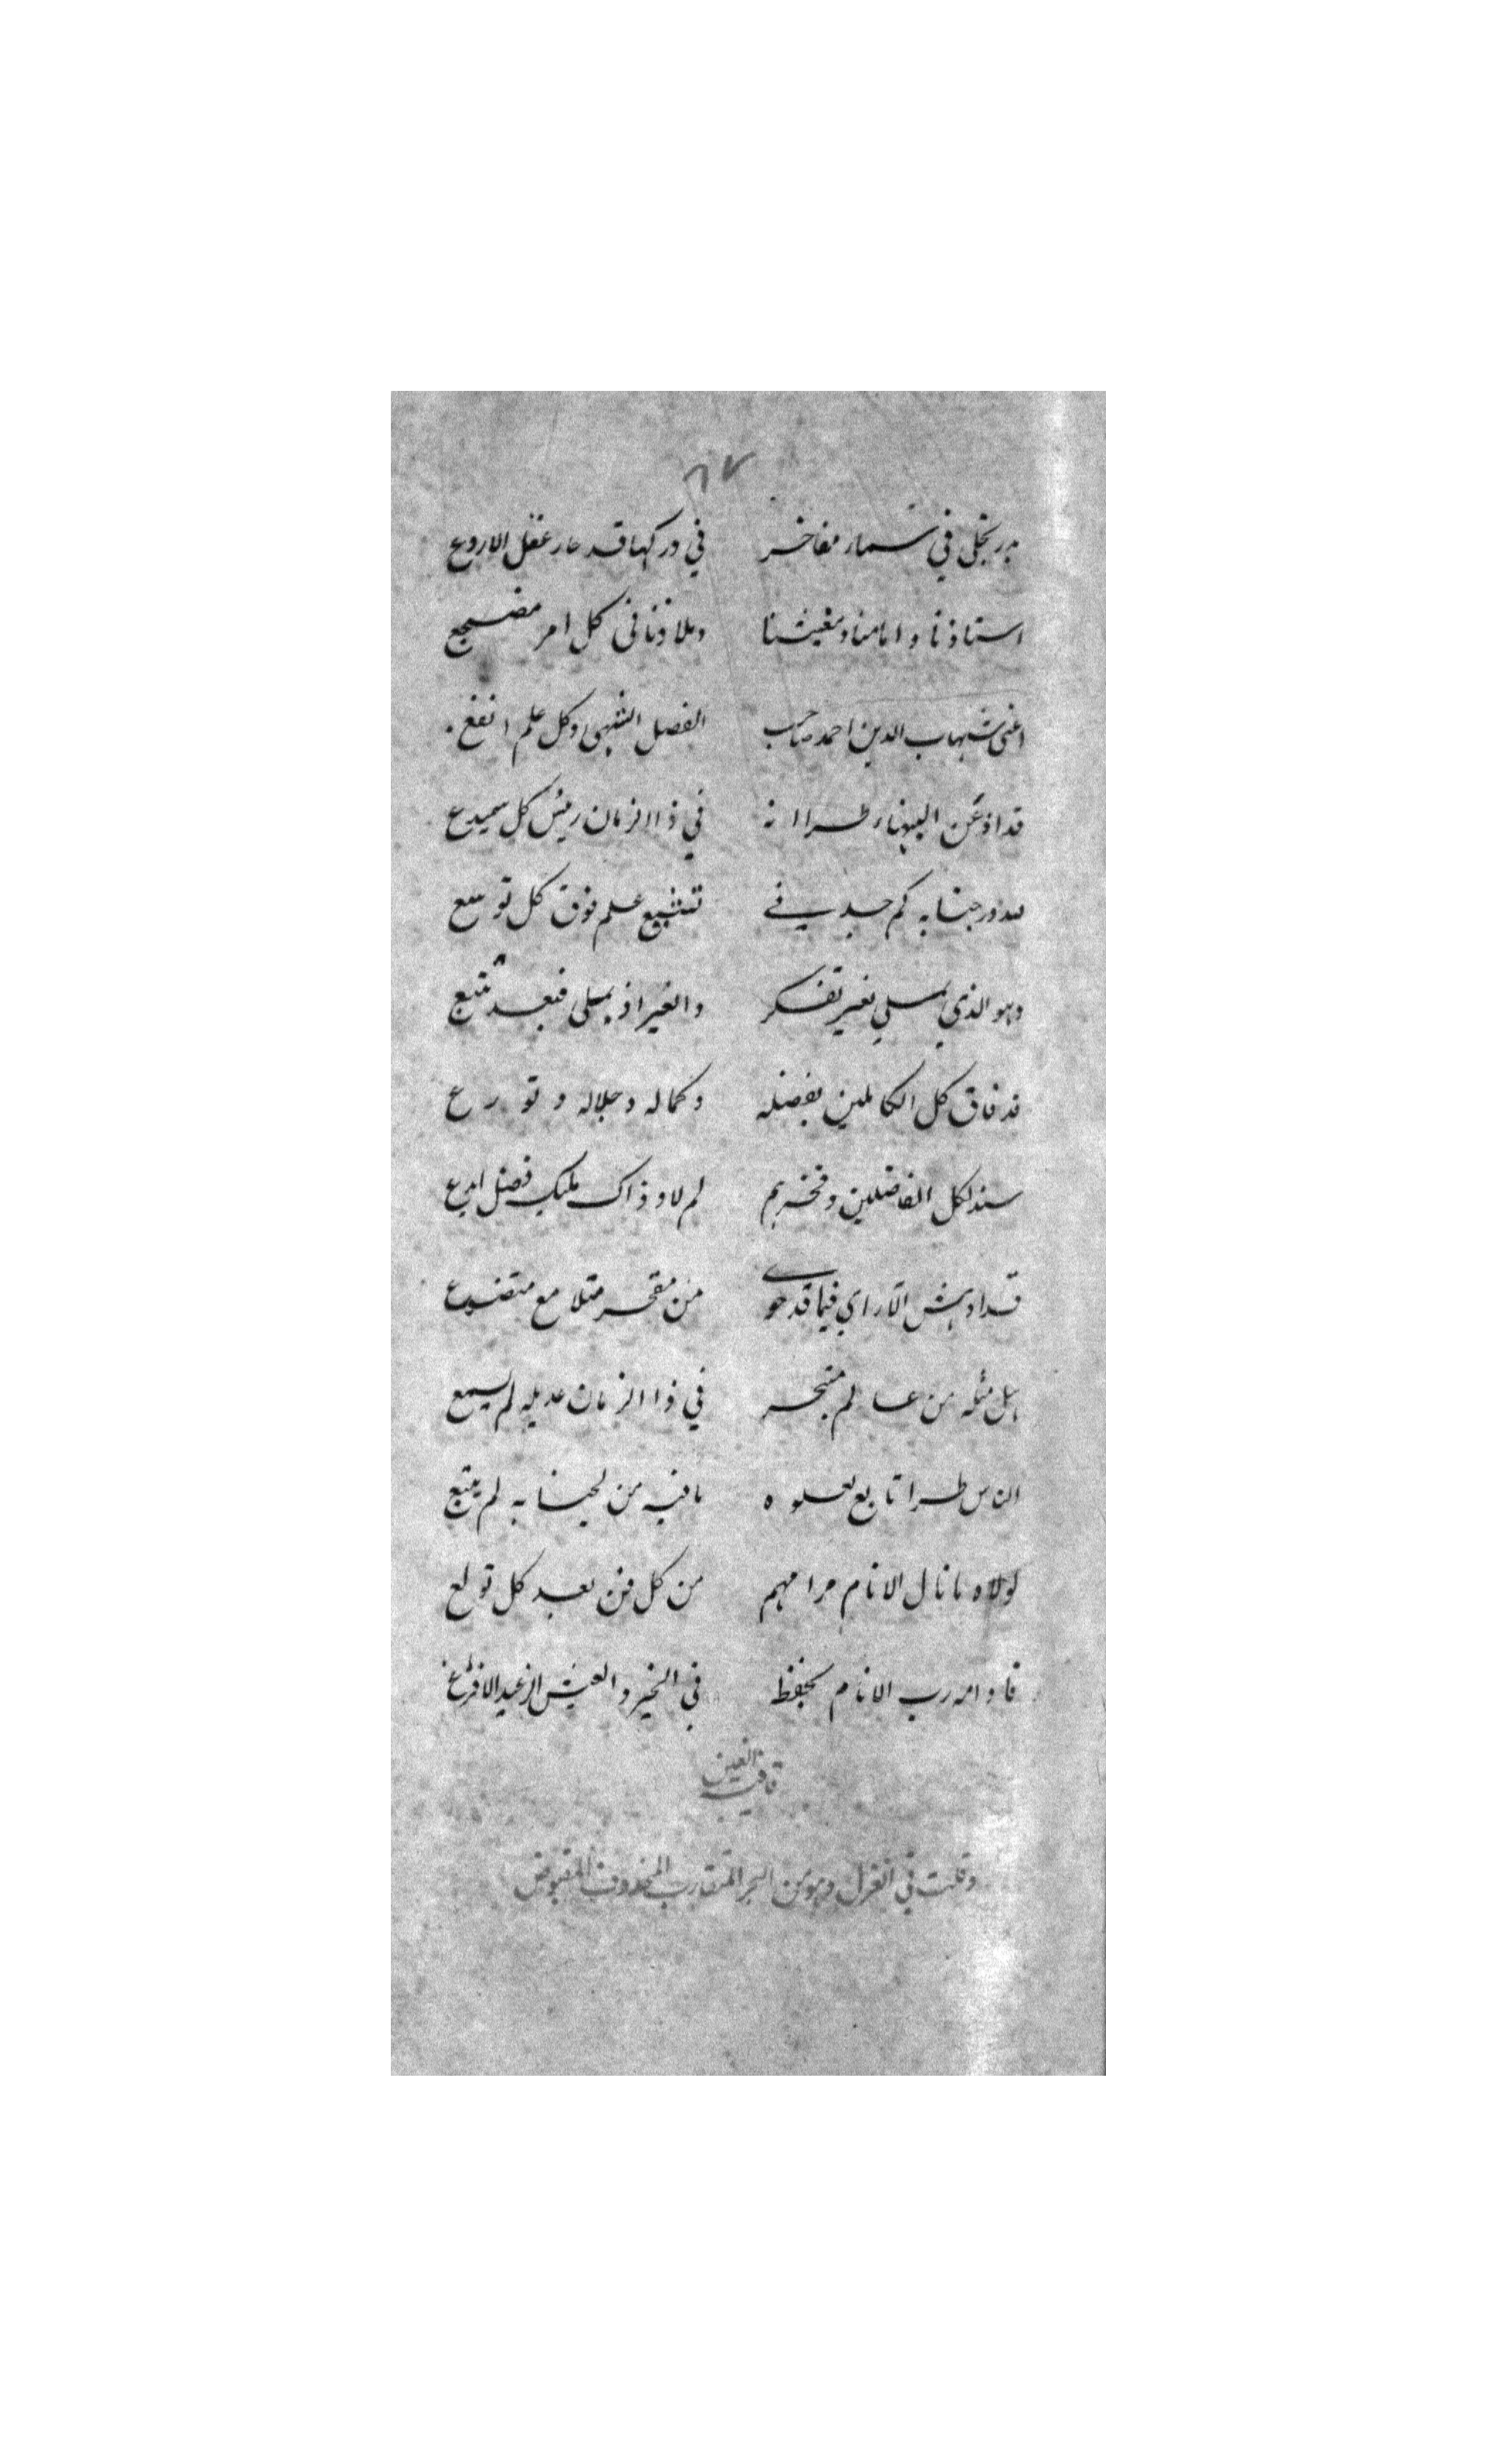 ٨٧
بدر تجلى في سماء مفاخر في دركها قد حار عقل الاروع
استاذنا وامامنا ومغيثنا وملاذنا في كل امر مضجع
اعني شهاب الدين احمد صاحب الفضل الشهي وكل علم انفع
قد اذعن البلغاء طرا انه في ذا الزمان رئيس كل سميدع
لله در جنابه كم جد في علم فوق كل توسع
وهو الذي يملي بغير تفكر والغير اذ يملى فبعد تتبع
قد فاق كل الكاملين بفضله وكماله وجلاله وتورع
سند لكل الفاضلين وفخرهم لم لا وذاك مليك فضل ابدع
قد ادهش الآراء فيما قد حوى من مفخر متلامع متضوع
هل مثله من عالم متبحر في ذا الزمان عديله لم يسمع
الناس طرا تابع لعلوه ما فيه من لجنابه لم يتبع
لولاه ما نال الانام مرامهم من كل فن بعد كل تولع
فادامه رب الانام بحفظه في الخير والعيش الرغيد الافرع
قافية الغين
وقلت في الغزل وهو من البحر المتقارب المحذوف المقبوض